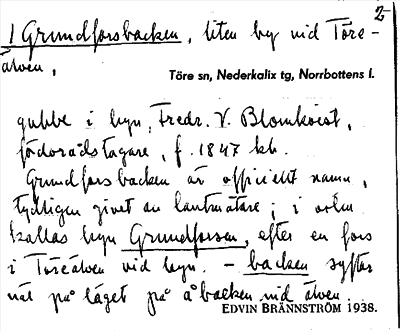 2
1 Grundforsbacken, liten by vid Töre-
älven,
Töre sn, Nederkalix tg, Norrbottens l.
gubbe i byn, Fredr. V. Blomkvist,
födorådstagare, f. 1847 kb.
Grundforsbacken är officiellt namn,
tydligen givet av lantmätare; i orten
kallas byn Grundforsen, efter en fors
i Töreälven vid byn. – backen syftar
väl på läget på åbacken vid älven.
EDVIN BRÄNNSTRÖM 1938.